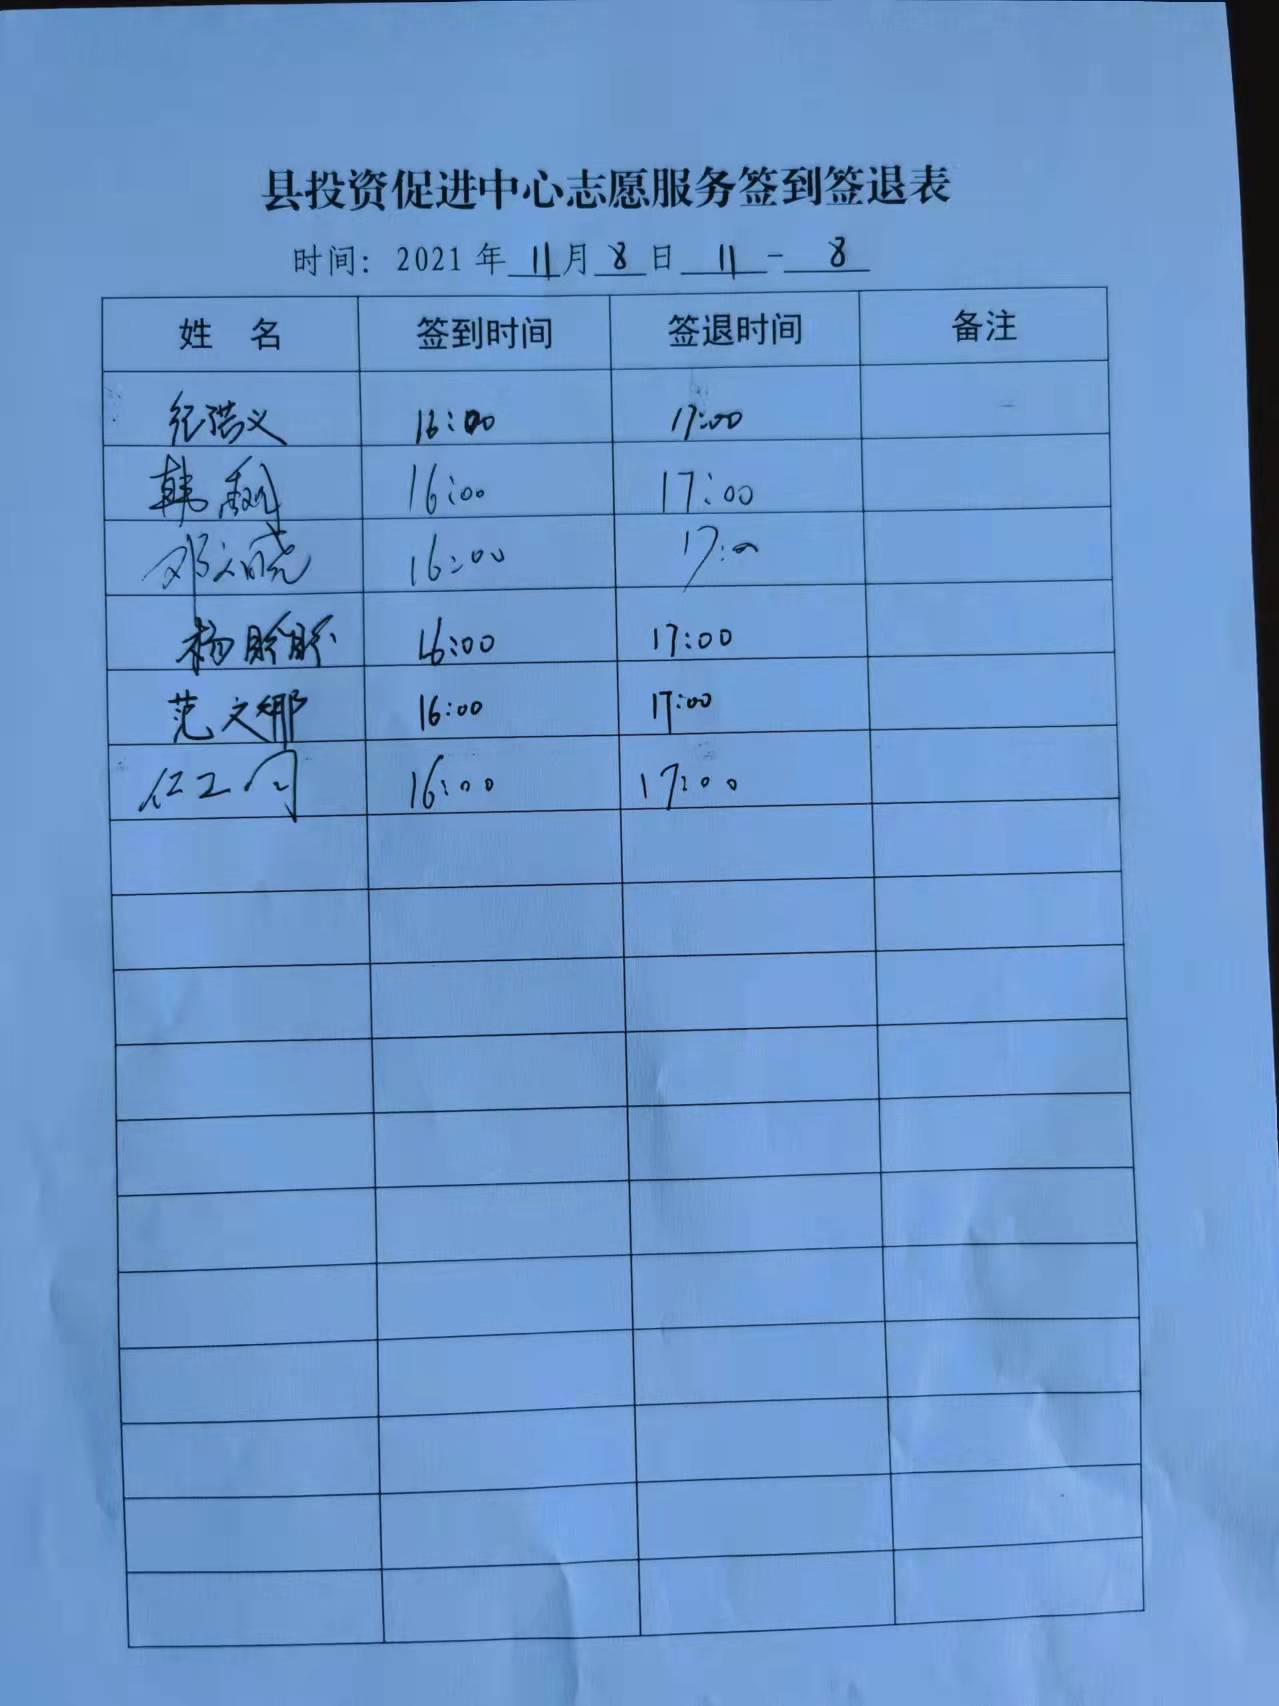 县投资促进中心志愿服务签到签退表
时间：2021年11月8日11-8
姓 名 签到时间 签退时间 备注
纪浩义 16:00 17:00
韩 16:00 17:00
邓文晓 16:00 17:00
杨盼盼 16:00 17:00
范文娜 16:00 17:00
16:00 17:00